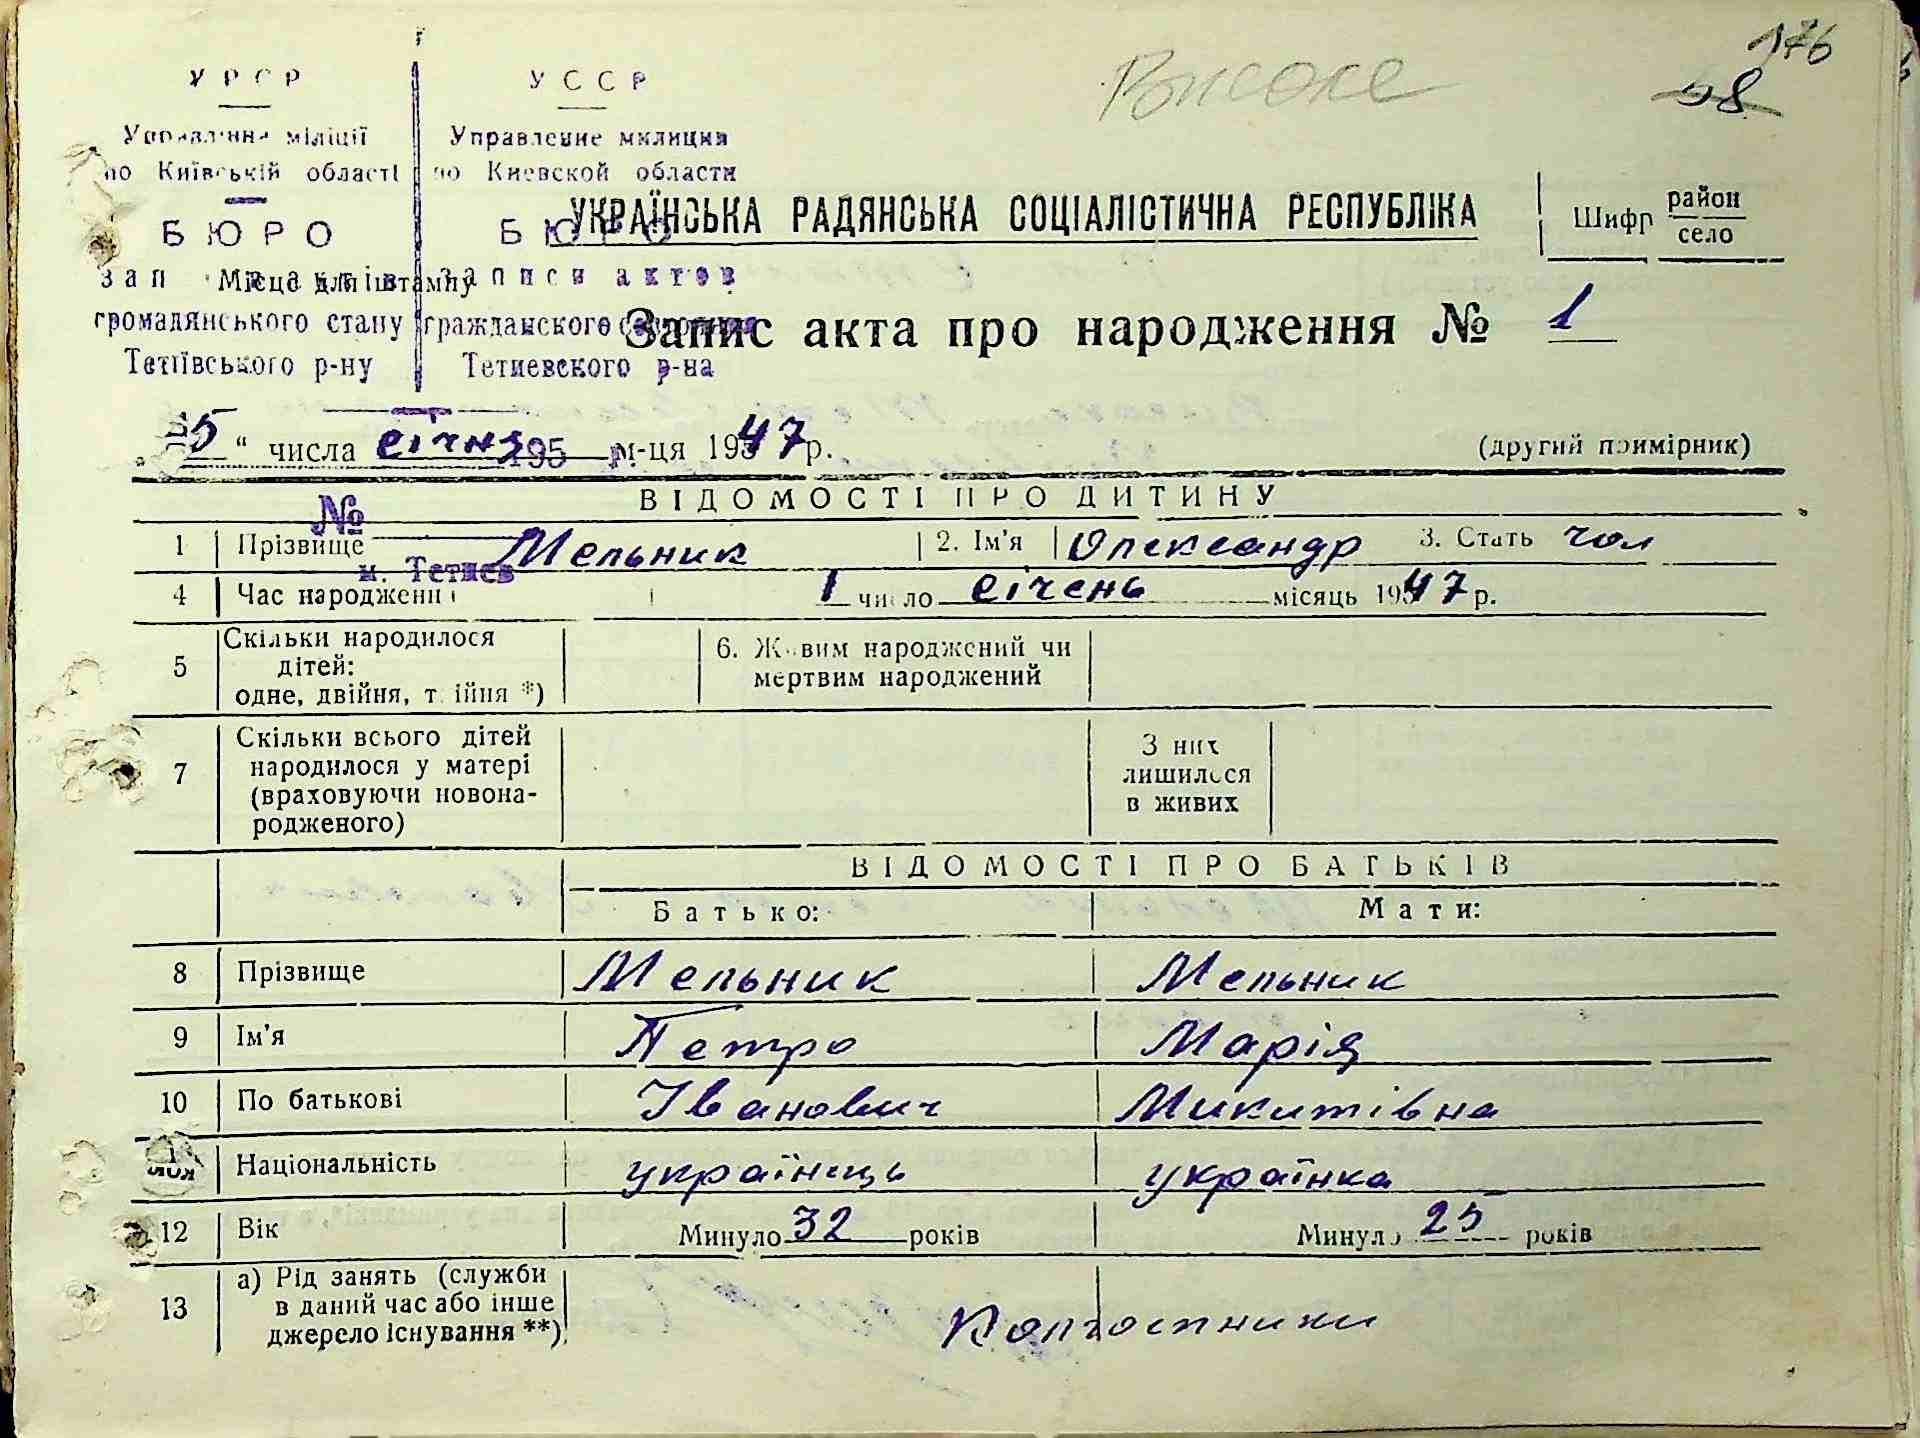 176
Високе
58
УРСР
Управління міліції
по Київській області
БЮРО
запису актів
громадянського стану
Тетіївського р-ну
УССР
Управление милиции
по Киевской области
БЮРО
записи актов
гражданского состояния
Тетиевского р-на
195 р.
№
м. Тетиев
УКРАЇНСЬКА РАДЯНСЬКА СОЦІАЛІСТИЧНА РЕСПУБЛІКА
Шифр район село
Місце для штампу
Запис акта про народження № 1
5 " числа січня м-ця 1947 р.
(другий примірник)
ВІДОМОСТІ ПРО ДИТИНУ
1 Прізвище Мельник 2. Ім'я Олександр 3. Стать чол
4 Час народження 1 число січень місяць 1947 р.
5 Скільки народилося дітей: одне, двійня, трійня *) 6. Живим народжений чи мертвим народжений
7 Скільки всього дітей народилося у матері (враховуючи новонародженого) З них лишилося в живих
ВІДОМОСТІ ПРО БАТЬКІВ
Батько: Мати:
8 Прізвище Мельник Мельник
9 Ім'я Петро Марія
10 По батькові Іванович Микитівна
Національність українець українка
12 Вік Минуло 32 років Минуло 25 років
13 а) Рід занять (служби в даний час або інше джерело існування **) Колгоспники